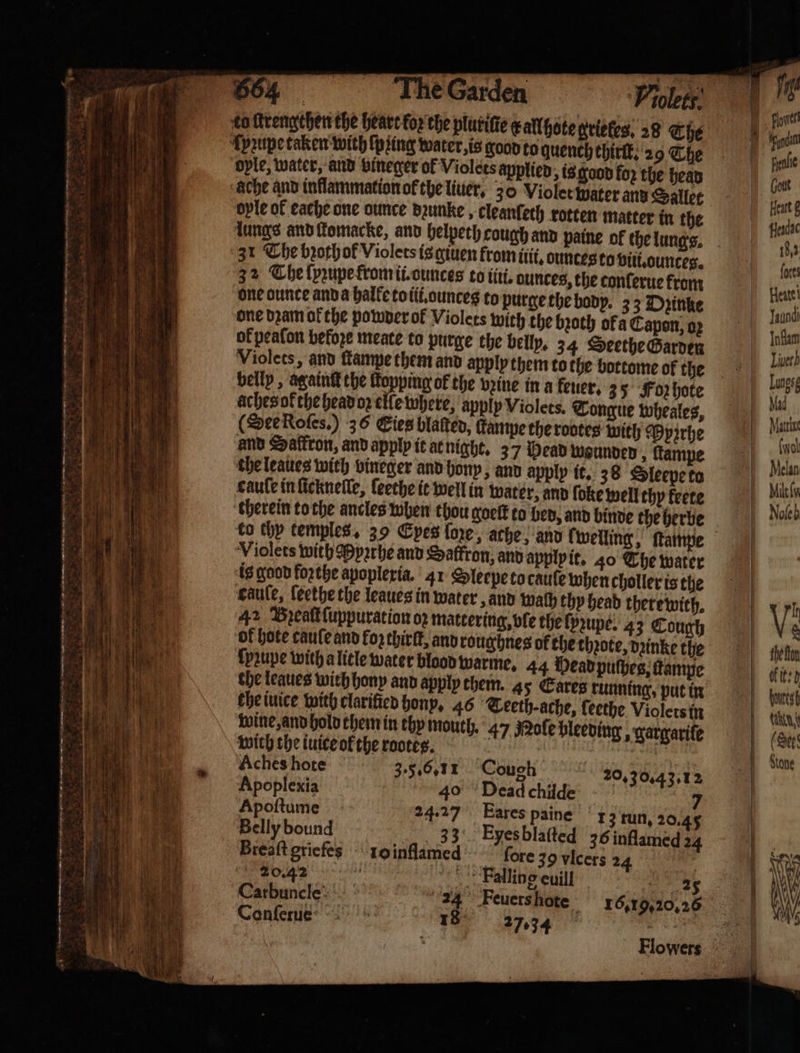 664 The Garden Violets.
to strengthen the heart for the plurisie & all hote griefes. 28 The
syrupe taken with spring water, is good to quench thirst. 29 The
oyle, water, and vineger of Violets applied, is good for the head
ache and inflammation of the liuer. 30 Violet water and Sallet
oyle of eache one ounce drunke, cleanseth rotten matter in the
lungs and stomacke, and helpeth cough and paine of the lungs.
31 The broth of Violets is giuen from iiii. ounces to viii. ounces.
32 The syrupe from ii. ounces to iiii. ounces, the conserue from
one ounce and a halfe to iii. ounces to purge the body. 33 Drinke
one dram of the powder of Violets with the broth of a Capon, or
of peason before meate to purge the belly. 34 Seethe Garden
Violets, and stampe them and apply them to the bottome of the
belly, against the stopping of the vrine in a feuer. 35 For hote
aches of the head or elsewhere, apply Violets. Tongue wheales,
(See Roses.) 36 Eies blasted, stampe the rootes with Myrrhe
and Saffron, and apply it at night. 37 Head wounded, stampe
the leaues with vineger and hony, and apply it. 38 Sleepe to
cause in sicknesse, seethe it well in water, and soke well thy feete
therein to the ancles when thou goest to bed, and binde the herbe
to thy temples. 39 Eyes sore, ache, and swelling, stampe
Violets with Myrrhe and Saffron, and apply it. 40 The water
is good for the apoplexia. 41 Sleepe to cause when choller is the
cause, seethe the leaues in water, and wash thy head therewith.
42 Breast suppuration or mattering, vse the syrupe. 43 Cough
of hote cause and for thirst, and roughnes of the throte, drinke the
syrupe with a litle water blood warme. 44 Head pushes, stampe
the leaues with hony and apply them. 45 Eares running, put in
the iuice with clarified hony. 46 Teeth-ache, seethe Violets in
wine, and hold them in thy mouth. 47 Nose bleeding, gargarise
with the iuice of the rootes.
Aches hote 3.5.6,11 Cough 20,30.43.12
Apoplexia 40 Dead childe 7
Apostume 24.27 Eares paine 13 run, 20.45
Belly bound 33 Eyes blasted 36 inflamed 24
Breast griefes 10 inflamed sore 39 vlcers 24
20.42 Falling euill 25
Carbuncle 24 Feuers hote 16,19,20,26
Conserue 18 27.34
Flowers